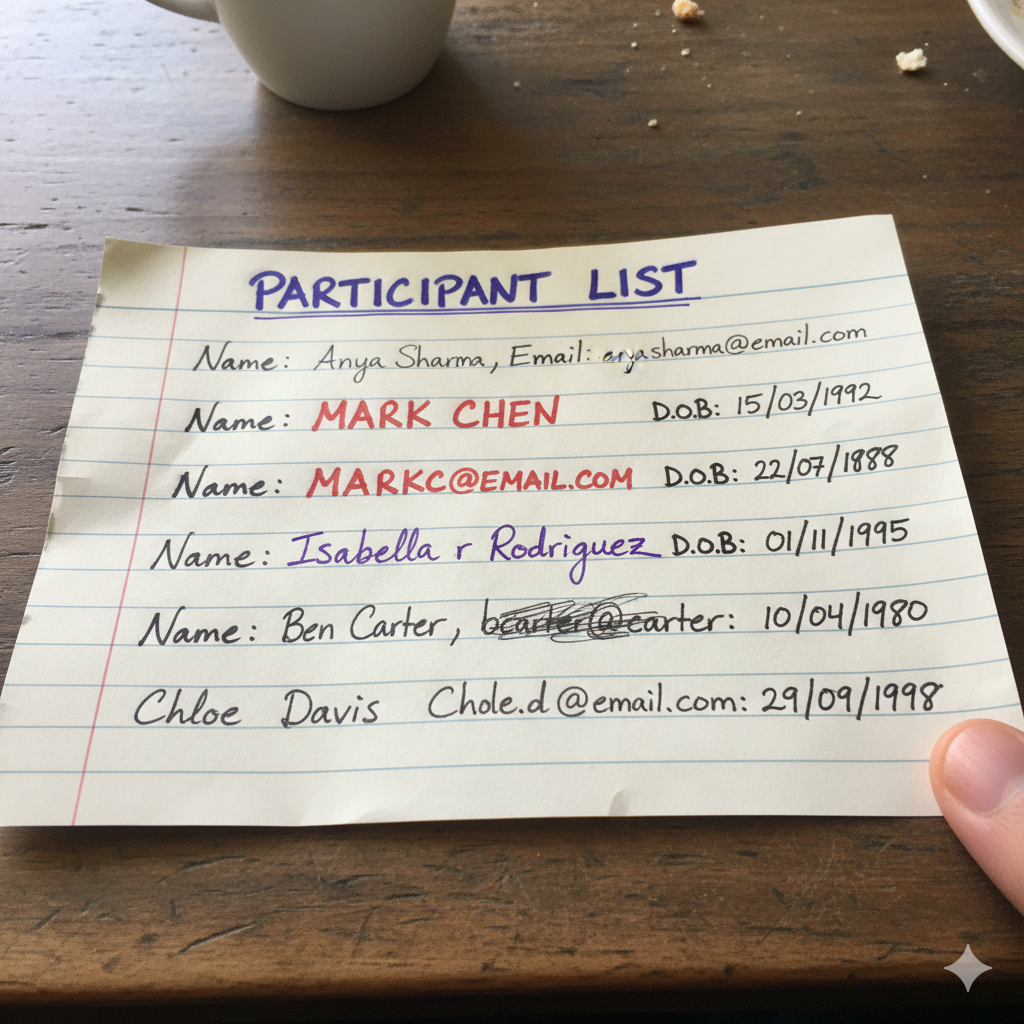 PARTICIPANT LIST
Name: Anya Sharma, Email: anyasharma@email.com
Name: MARK CHEN D.O.B: 15/03/1992
Name: MARKC@EMAIL.COM D.O.B: 22/07/1888
Name: Isabella r Rodriguez D.O.B: 01/11/1995
Name: Ben Carter, bcarter@carter: 10/04/1980
Chloe Davis Chole.d@email.com: 29/09/1998